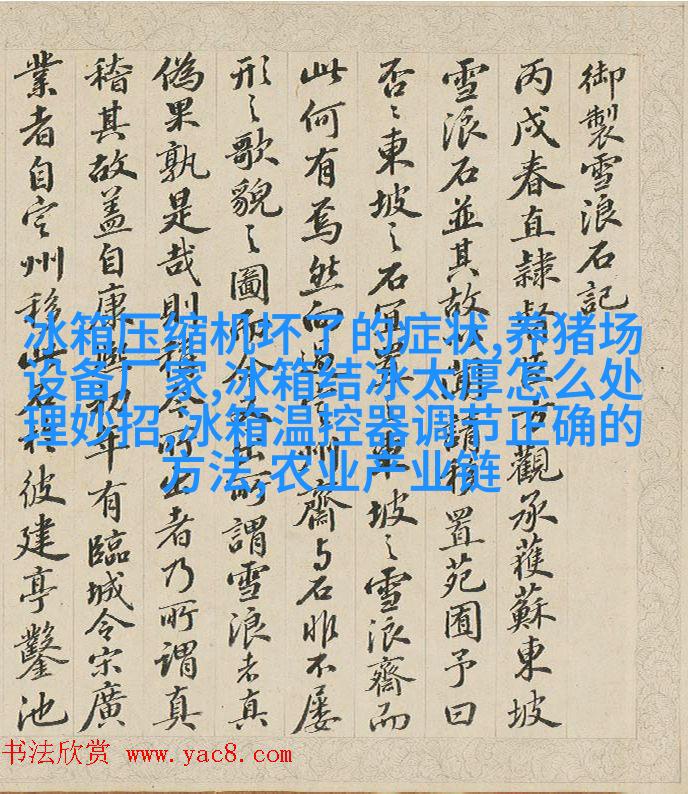 御製雪浪石記
丙戌春直隸督臣方觀承獲蘇東坡
雪浪石並其故狀請移置苑囿予曰
否〻東坡之石東坡之雪浪齋而
此何有焉然而過定州齋与石非不屢
形之歌貌之圖而今所謂雪浪者真
偽果孰是哉則今所出者乃所謂真
稽其故蓋自康熙初年有臨城令宋廣
業者自定州移此石於彼建亭鑿池
冰箱压缩机坏了的症状,养猪场
设备厂家,冰箱结冰太厚怎么处
理妙招,冰箱温控器调节正确的
方法,农业产业链
书法欣赏 www.yac8.com